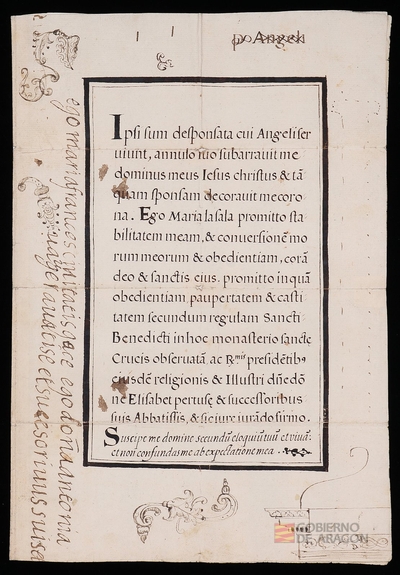 po Angeli
Ipsi sum desponsata cui Angeli ser
viunt, annulo suo subarravit me
dominus meus Iesus christus & tã
quam sponsam decoravit me coro
na. Ego Maria lasala promitto sta
bilitatem meam, & conversionẽ mo
rum meorum & obedientiam, corã
deo & sanctis eius. promitto in quã
obedientiam, paupertatem & casti
tatem secundum regulam Sancti
Benedicti in hoc monasterio sancte
Crucis observatã. ac Rmis presidẽtibꝰ
eiusdẽ religionis & Illustri dñe dõ
ne Elisabet pertuse & successoribus
suis Abbatissis, & sic iure iurãdo firmo.
Suscipe me domine secundũ eloquiũ tuũ et vivã:
et non confundas me ab expectatione mea.
ego maria frances
ego doña antonia
et sucesorinus suisa
GOBIERNO
DE ARAGON